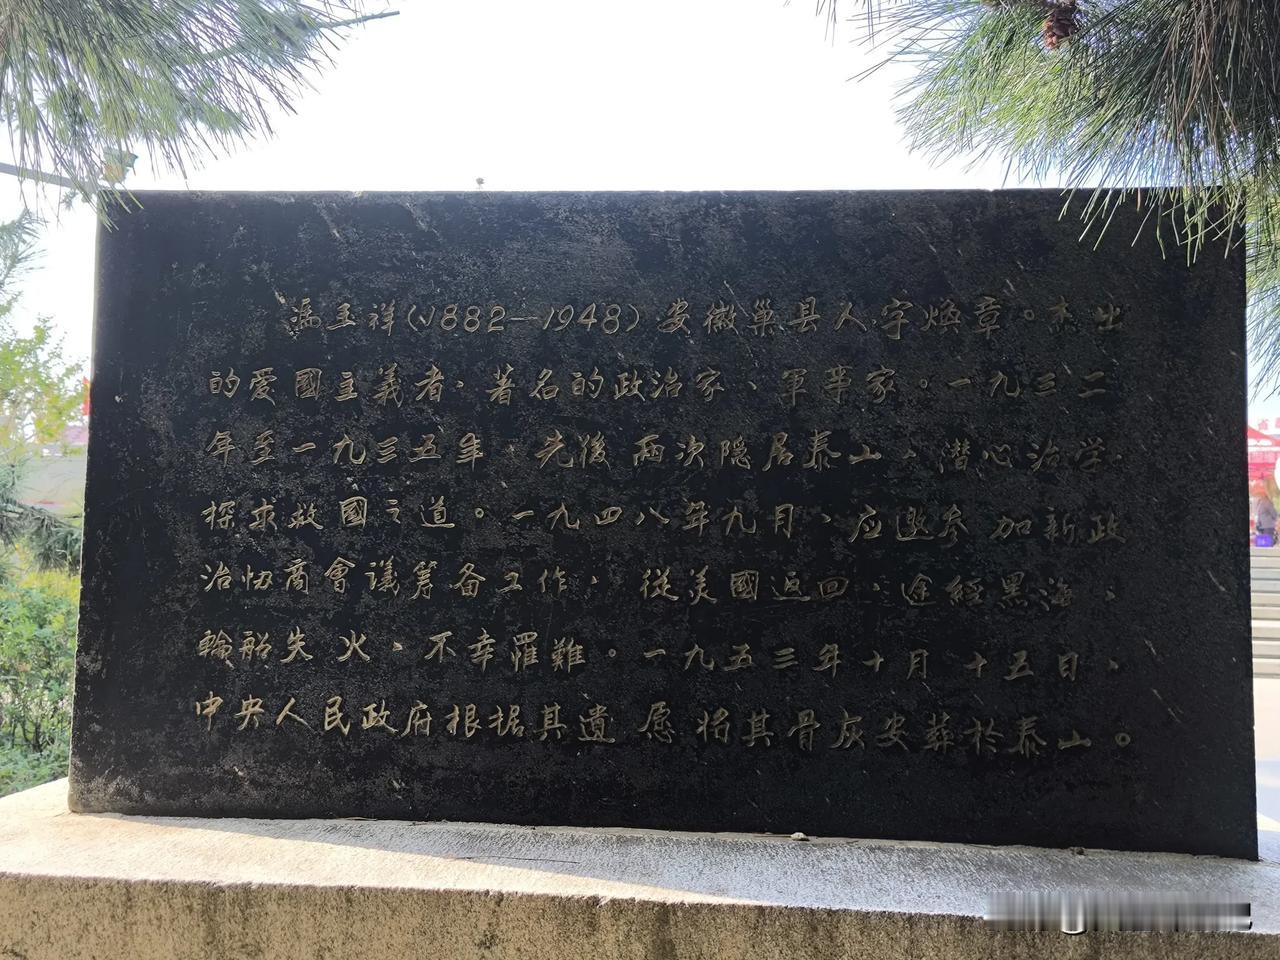 馮玉祥(1882—1948)安徽巢县人字焕章。杰出
的爱國主義者、著名的政治家、軍事家。一九三二
年至一九三五年、先後兩次隐居泰山、潜心治学、
探求救國之道。一九四八年九月、应邀参加新政
治协商會议筹备工作,從美國返回、途經黑海、
輪船失火、不幸罹難。一九五三年十月十五日、
中央人民政府根据其遺愿将其骨灰安葬於泰山。